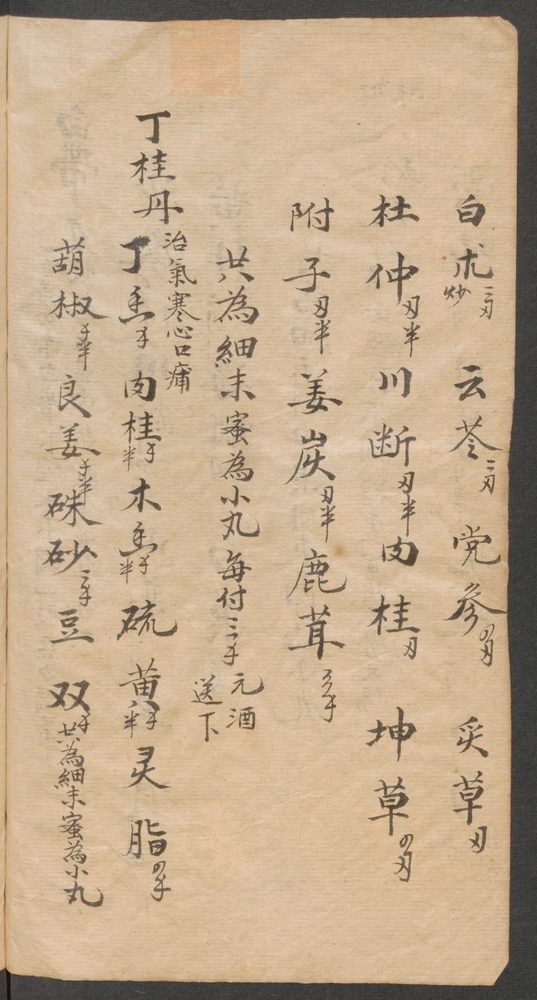 白朮炒二刃 云苓二刃 党參四刃 炙草刃
杜仲刃半 川断刃半 肉桂刃 坤草四刃
附子刃半 姜炭刃半 鹿茸
共為細末蜜為小丸每付三手元酒送下
丁桂丹治氣寒心口痛
丁香手 肉桂手半 木香手半 硫黄手半 灵脂四手
胡椒手半 良姜手半 硃砂二手 豆双手 共為細末蜜為小丸